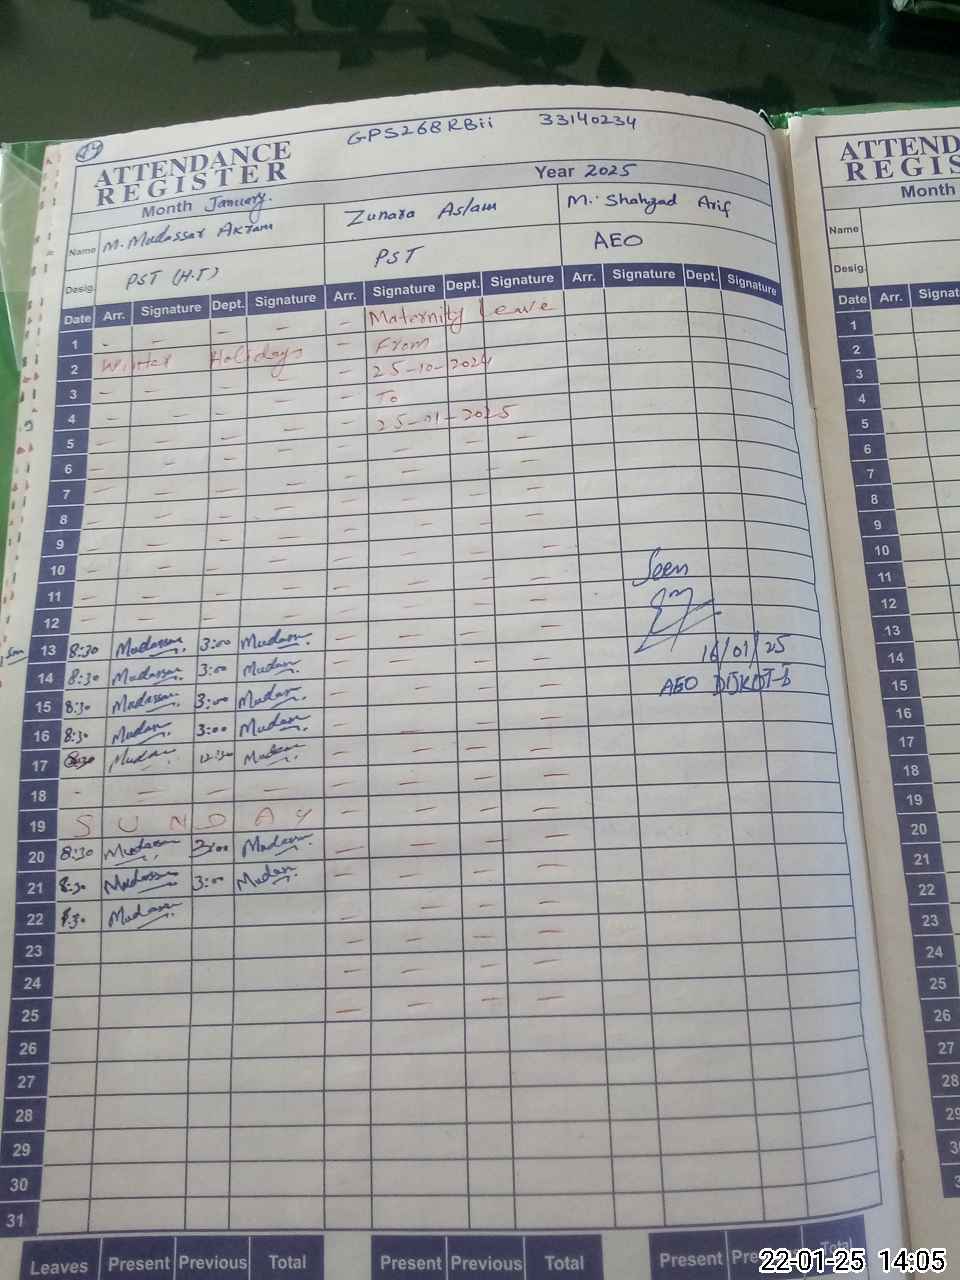 24
GPS268RBii 33140234
ATTENDANCE
REGISTER
Year 2025
Month January.
Name M. Mudassar Akram Zunara Aslam M. Shahzad Arif
Desig. PST (H.T) PST AEO
Date Arr. Signature Dept. Signature Arr. Signature Dept. Signature Arr. Signature Dept. Signature
1 Maternity Leave
2 Winter Holidays From
3 25-10-2024
4 To
5 25-01-2025
6
7
8
9
10
11
12
Seen
13 8:30 Mudassar 3:00 Mudassar
14 8:30 Mudassar 3:00 Mudassar 16/01/25
15 8:30 Mudassar 3:00 Mudassar AEO DIJKOT-b
16 8:30 Mudassar 3:00 Mudassar
17 8:30 Mudassar 12:30 Mudassar
18
19 SUNDAY
20 8:30 Mudassar 3:00 Mudassar
21 8:30 Mudassar 3:00 Mudassar
22 8:30 Mudassar
23
24
25
26
27
28
29
30
31
Leaves Present Previous Total Present Previous Total Present Total
ATTEND
REGIS
Month
Name
Desig.
Date Arr. Signat
1
2
3
4
5
6
7
8
9
10
11
12
13
14
15
16
17
18
19
20
21
22
23
24
25
26
27
28
29
22-01-25 14:05